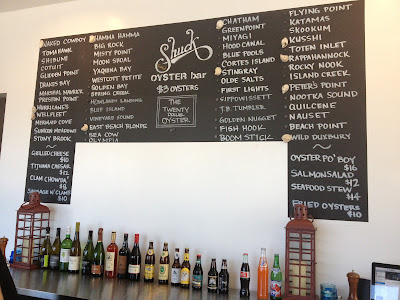 NAKED COWBOY
TOMAHAWK
SHIBUMI
COTUIT
GLIDDEN POINT
DRAKES BAY
MARSHALL MARKER
PRESTON POINT
WELLFLEET
MERMAID COVE
SUNKEN MEADOW
STONY BROOK
GRILLED CHEESE
$10
TIJUANA CAESAR
$12
CLAM CHOWDA'
$8
SAUSAGE N' CLAMS
$10
HAMMA HAMMA
BIG ROCK
MISTY POINT
MOON SHOAL
YAQUINA BAY
WESTCOTT PETITE
GOLDEN BAY
SPRING CREEK
HOWLAND LANDING
BLUE ISLAND
VINEYARD SOUND
EAST BEACH BLONDE
SEA COW
OLYMPIA
Shuck
OYSTER bar
$3 OYSTERS
THE
TWENTY
DOLLAR
OYSTER
CHATHAM
GREENPOINT
MIYAGI
HOOD CANAL
BLUE POOLS
CORTES ISLAND
STINGRAY
OLDE SALTS
FIRST LIGHTS
SIPPOWISSETT
T.B. TUMBLER
GOLDEN NUGGET
FISH HOOK
BOOM STICK
FLYING POINT
KATAMAS
SKOOKUM
KUSSHI
TOTEN INLET
RAPPAHANNOCK
ROCKY NOOK
ISLAND CREEK
PETER'S POINT
NOOTKA SOUND
QUILCENE
NAUSET
BEACH POINT
WILD DUXBURY
OYSTER PO' BOY
$16
SALMON SALAD
$12
SEAFOOD STEW
$14
FRIED OYSTERS
$10